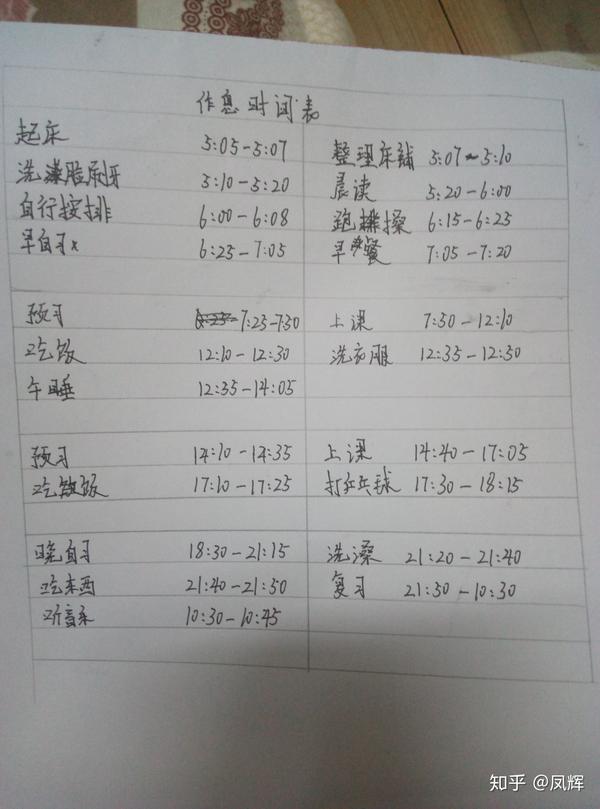 作息时间表
起床 5:05-5:07 整理床铺 5:07~5:10
洗漱脸刷牙 5:10-5:20 晨读 5:20-6:00
自行安排 6:00-6:08 跑操 6:15-6:25
早自习 6:25-7:05 早餐 7:05-7:20
预习 7:25-7:50 上课 7:50-12:10
吃饭 12:10-12:30 洗衣服 12:35-12:50
午睡 12:35-14:05
预习 14:10-14:35 上课 14:40-17:05
吃饭 17:10-17:25 打乒乓球 17:30-18:15
晚自习 18:30-21:15 洗澡 21:20-21:40
吃东西 21:40-21:50 复习 21:50-10:30
听音乐 10:30-10:45
知乎 @凤辉